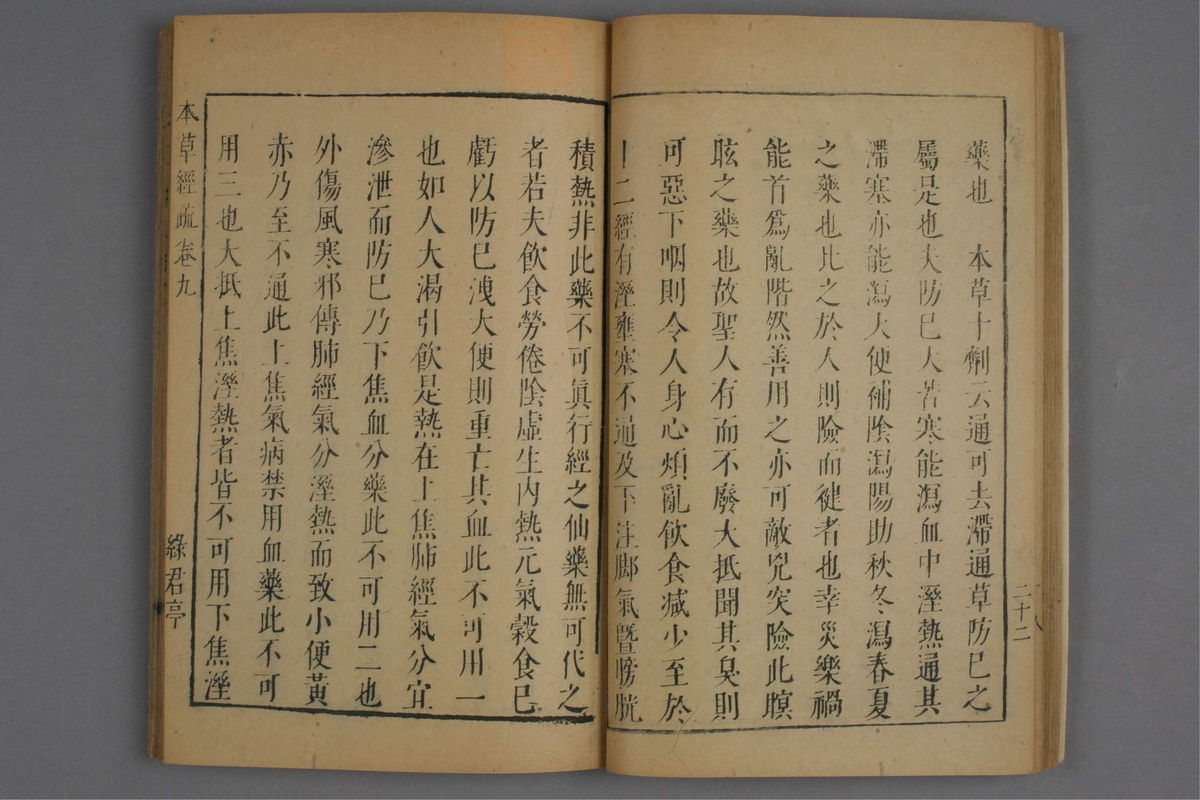 藥也　本草十劑云通可去滯通草防巳之
屬是也夫防巳大苦寒能瀉血中溼熱通其
滯塞亦能瀉大便補陰瀉陽助秋冬瀉春夏
之藥也比之於人則險而健者也幸災樂禍
能首爲亂階然善用之亦可敵兇突險此瞑
眩之藥也故聖人有而不廢大抵聞其臭則
可惡下咽則令人身心煩亂飲食减少至於
十二經有溼壅塞不通及下注脚氣曁膀胱
二十二
積熱非此藥不可眞行經之仙藥無可代之
者若夫飲食勞倦陰虛生内熱元氣穀食巳
虧以防巳洩大便則重亡其血此不可用一
也如人大渴引飲是熱在上焦肺經氣分宜
滲泄而防巳乃下焦血分藥此不可用二也
外傷風寒邪傳肺經氣分溼熱而致小便黃
赤乃至不通此上焦氣病禁用血藥此不可
用三也大抵上焦溼熱者皆不可用下焦溼
本草經疏卷九
綠君亭